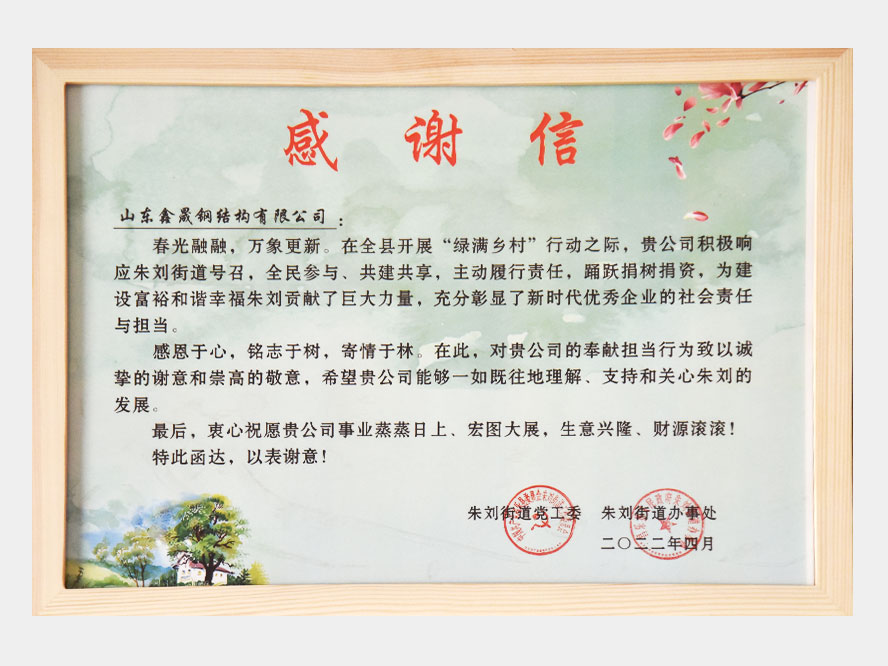 感谢信
山东鑫晟钢结构有限公司：
春光融融，万象更新。在全县开展“绿满乡村”行动之际，贵公司积极响
应朱刘街道号召，全民参与、共建共享，主动履行责任，踊跃捐树捐资，为建
设富裕和谐幸福朱刘贡献了巨大力量，充分彰显了新时代优秀企业的社会责任
与担当。
感恩于心，铭志于树，寄情于林。在此，对贵公司的奉献担当行为致以诚
挚的谢意和崇高的敬意，希望贵公司能够一如既往地理解、支持和关心朱刘的
发展。
最后，衷心祝愿贵公司事业蒸蒸日上、宏图大展，生意兴隆、财源滚滚！
特此函达，以表谢意！
朱刘街道党工委 朱刘街道办事处
二〇二二年四月